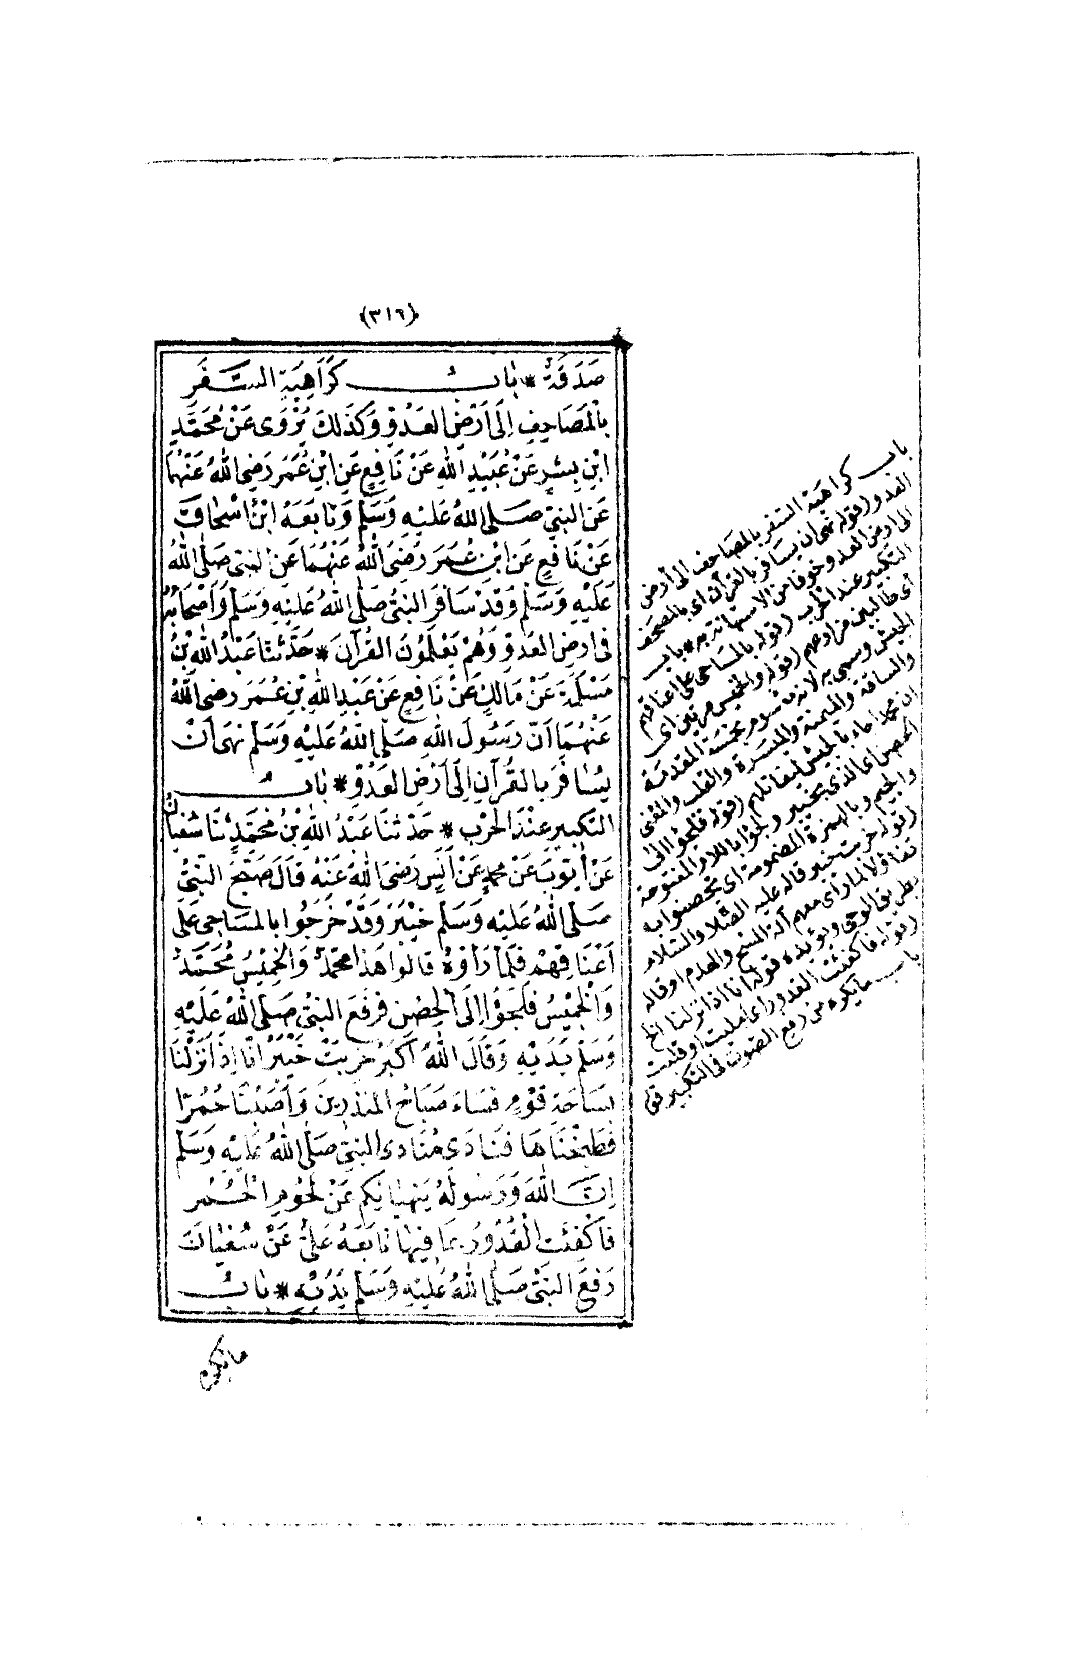 (٣١٦)
صَدَقَةٌ * بَابُ كَرَاهِيَةِ السَّفَرِ
بِالْمَصَاحِفِ اِلَى اَرْضِ العَدُوِّ وَكَذٰلِكَ يُرْوَى عَنْ مُحَمَّدِ
ابْنِ بِشْرٍ عَنْ عُبَيْدِ اللهِ عَنْ نَافِعٍ عَنِ ابْنِ عُمَرَ رَضِىَ اللهُ عَنْهُمَا
عَنِ النبىِّ صَلَّى اللهُ عَلَيْهِ وَسَلَّمَ وَتَابَعَهُ ابْنُ اسْحَاقَ
عَنْ نَافِعٍ عَنِ ابْنِ عُمَرَ رَضِىَ اللهُ عَنْهُمَا عَنِ النبىِّ صَلَّى اللهُ
عَلَيْهِ وَسَلَّمَ وَقَدْ سَافَرَ النبىُّ صَلَّى اللهُ عَلَيْهِ وَسَلَّمَ وَاَصْحَابُهُ
فى ارْضِ العَدُوِّ وَهُمْ يَعْلَمُونَ القُرْآنَ * حَدَّثَنَا عَبْدُ اللهِ بْنُ
مَسْلَمَةَ عَنْ مَالِكٍ عَنْ نَافِعٍ عَنْ عَبْدِ اللهِ بْنِ عُمَرَ رَضِىَ اللهُ
عَنْهُمَا اَنَّ رَسُولَ اللهِ صَلَّى اللهُ عَلَيْهِ وَسَلَّمَ نَهَى اَنْ
يُسَافَرَ بِالقُرْآنِ اِلَى اَرْضِ العَدُوِّ * بَابُ
التَّكْبِيرِ عِنْدَ الحَرْبِ * حَدَّثَنَا عَبْدُ اللهِ بْنُ مُحَمَّدٍ ثَنَا سُفْيَانُ
عَنْ اَيُّوبَ عَنْ مُحَمَّدٍ عَنْ اَنَسٍ رَضِىَ اللهُ عَنْهُ قَالَ صَبَّحَ النبىُّ
صَلَّى اللهُ عَلَيْهِ وَسَلَّمَ خَيْبَرَ وَقَدْ خَرَجُوا بِالمَسَاحِى عَلَى
اَعْنَاقِهِمْ فَلَمَّا رَاَوْهُ قَالُوا هَذَا مُحَمَّدٌ وَالخَمِيْسُ مُحَمَّدٌ
وَالخَمِيْسُ فَلَجَؤُا اِلَى الحِصْنِ فَرَفَعَ النبىُّ صَلَّى اللهُ عَلَيْهِ
وَسَلَّمَ يَدَيْهِ وَقَالَ اللهُ اَكْبَرُ خَرِبَتْ خَيْبَرُ اِنَّا اِذَا نَزَلْنَا
بِسَاحَةِ قَوْمٍ فَسَاءَ صَبَاحُ المُنْذَرِينَ وَاَصَبْنَا حُمُرًا
فَطَبَخْنَاهَا فَنَادَى مُنَادِى النبىِّ صَلَّى اللهُ عَلَيْهِ وَسَلَّمَ
اِنَّ اللهَ وَرَسُولَهُ يَنْهَيَانِكُمْ عَنْ لُحُومِ الْحُمُرِ
فَاُكْفِئَتِ القُدُورُ بِمَا فِيهَا تَابَعَهُ عَلِىٌّ عَنْ سُفْيَانَ
رَفَعَ النبىُّ صَلَّى اللهُ عَلَيْهِ وَسَلَّمَ يَدَيْهِ * بَابُ
مايكره
باب كراهية السفر بالمصاحف الى أرض
العدو (قوله نهى ان يسافر بالقرآن) اى بالمصحف
الى ارض العدو خوفا من الاستهانة به * باب
التكبير عند الحرب (قوله بالمساحى على اعناقهم)
أى طالبين مزارعهم (قوله والخميس) مرتين اى
الجيش وسمى به لانه مقسوم بخمسة المقدمة
والساقة والميمنة والميسرة والقلب والمعنى
ان محمدا جاء بالجيش ليقاتلهم (قوله فلجؤا الى
الحصن) اى الذى بخيبر ولجؤا باللام المفتوحة
والجيم وبالهمزة المضمومة اى تحصنوا به
(قوله خربت خيبر) قاله عليه الصلاة والسلام
تفاؤلا لما رأى معهم آلة المسح والهدم او قاله
بطريق الوحى ويؤيده قوله انا اذا نزلنا الخ
(قوله فاكفئت القدور) اى اميلت او قلبت
باب مايكره من رفع الصوت فى التكبير قو